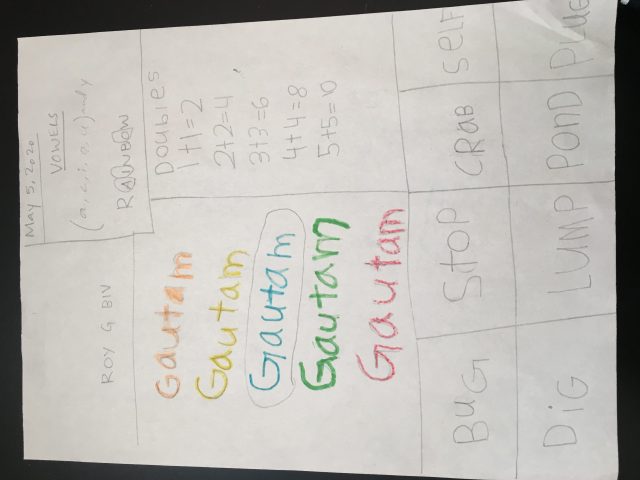 May 5, 2020
VOWELS
(a, e, i, o, u) and y
RAINBOW
ROY G BIV
Gautam
Gautam
Gautam
Gautam
Gautam
DOUBlES
1+1=2
2+2=4
3+3=6
4+4=8
5+5=10
BuG StoP CRaB SElF
DiG LUMP PonD PLUG